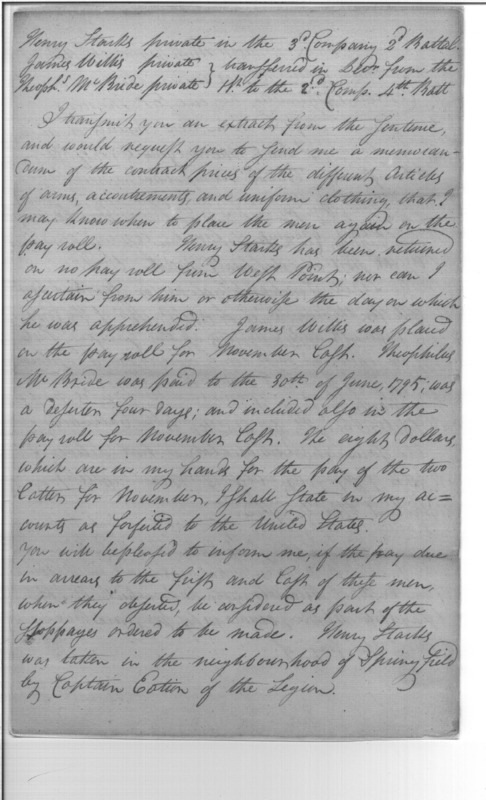 Henry Starks private in the 3d. Company 2d Battal.
James Willis private } transferred in Decr. from the
Theophs. McBride private } to the 2d. Comp. 4th. Batt
I transmit you an extract from the Sentence,
and would request you to send me a memoran-
dum of the contract prices of the different articles
of arms, accoutrements, and uniform clothing, that I
may know when to place the men again on the
pay roll. Henry Starks has been returned
on no pay roll from West Point; nor can I
ascertain from him or otherwise the day on which
he was apprehended. James Willis was placed
on the pay roll for November last. Theophilus
McBride was paid to the 30th. of June, 1795; was
a deserter four days; and included also in the
pay roll for November last. The eight Dollars,
which are in my hands for the pay of the two
latter for November, I shall state in my ac=
counts as forfeited to the United States.
You will be pleased to inform me, if the pay due
in arrears to the first and last of these men,
when they deserted, be considered as part of the
stoppages ordered to be made. Henry Starks
was taken in the neighbourhood of Springfield
by Captain Eaton of the Legion.